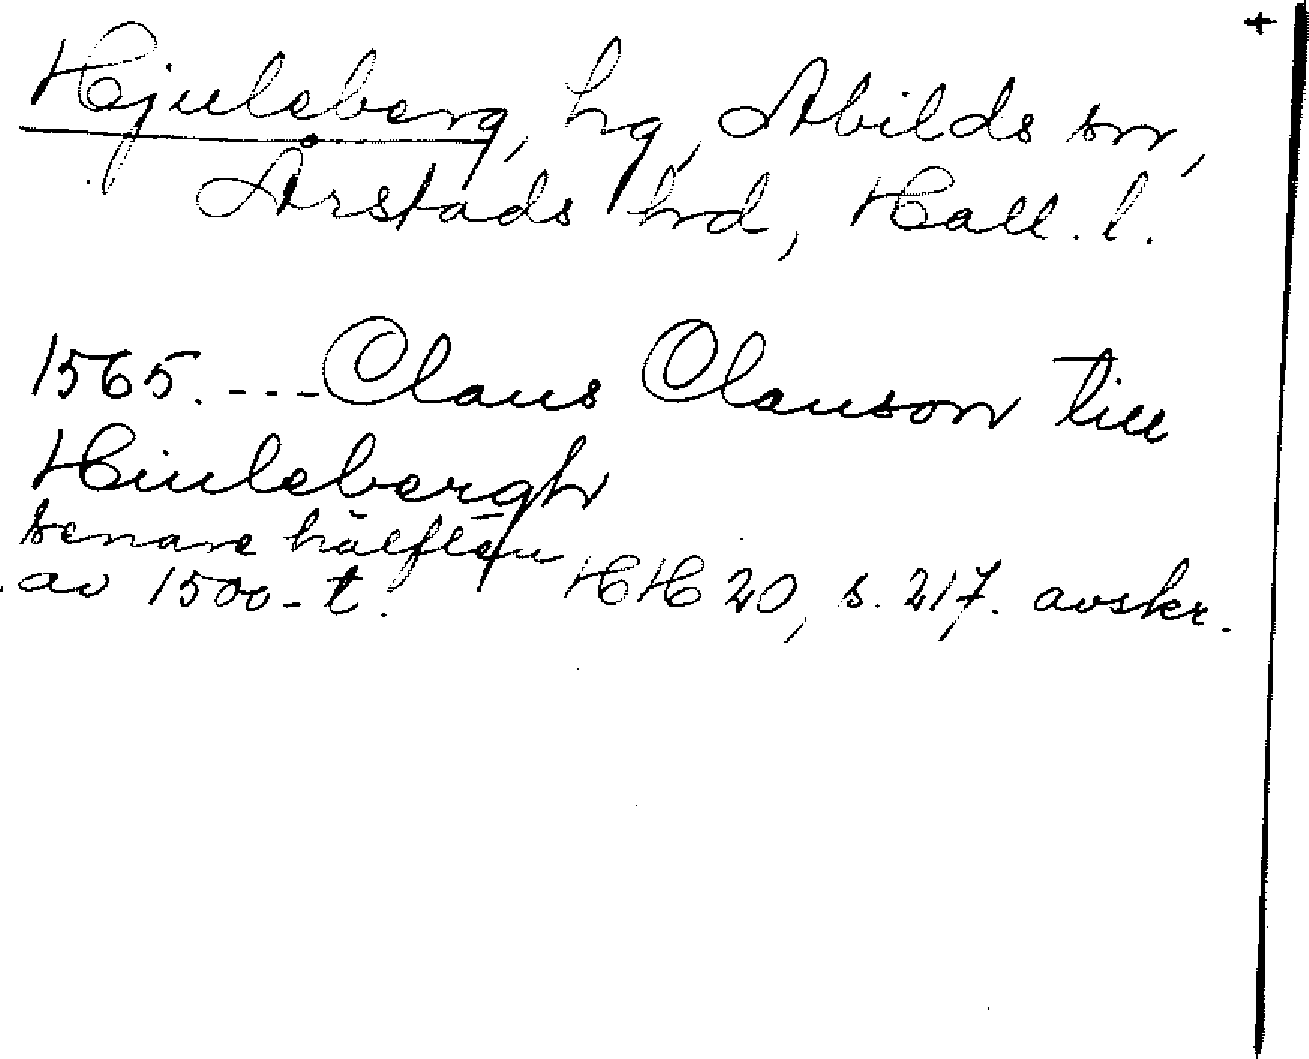 +
Hjuleberg, hg, Abilds sn,
Årstads hrd, Hall. l.
1565. --- Claus Clauson till
Hiulebergh
senare hälften
av 1500-t. HH 20, s. 217. avskr.